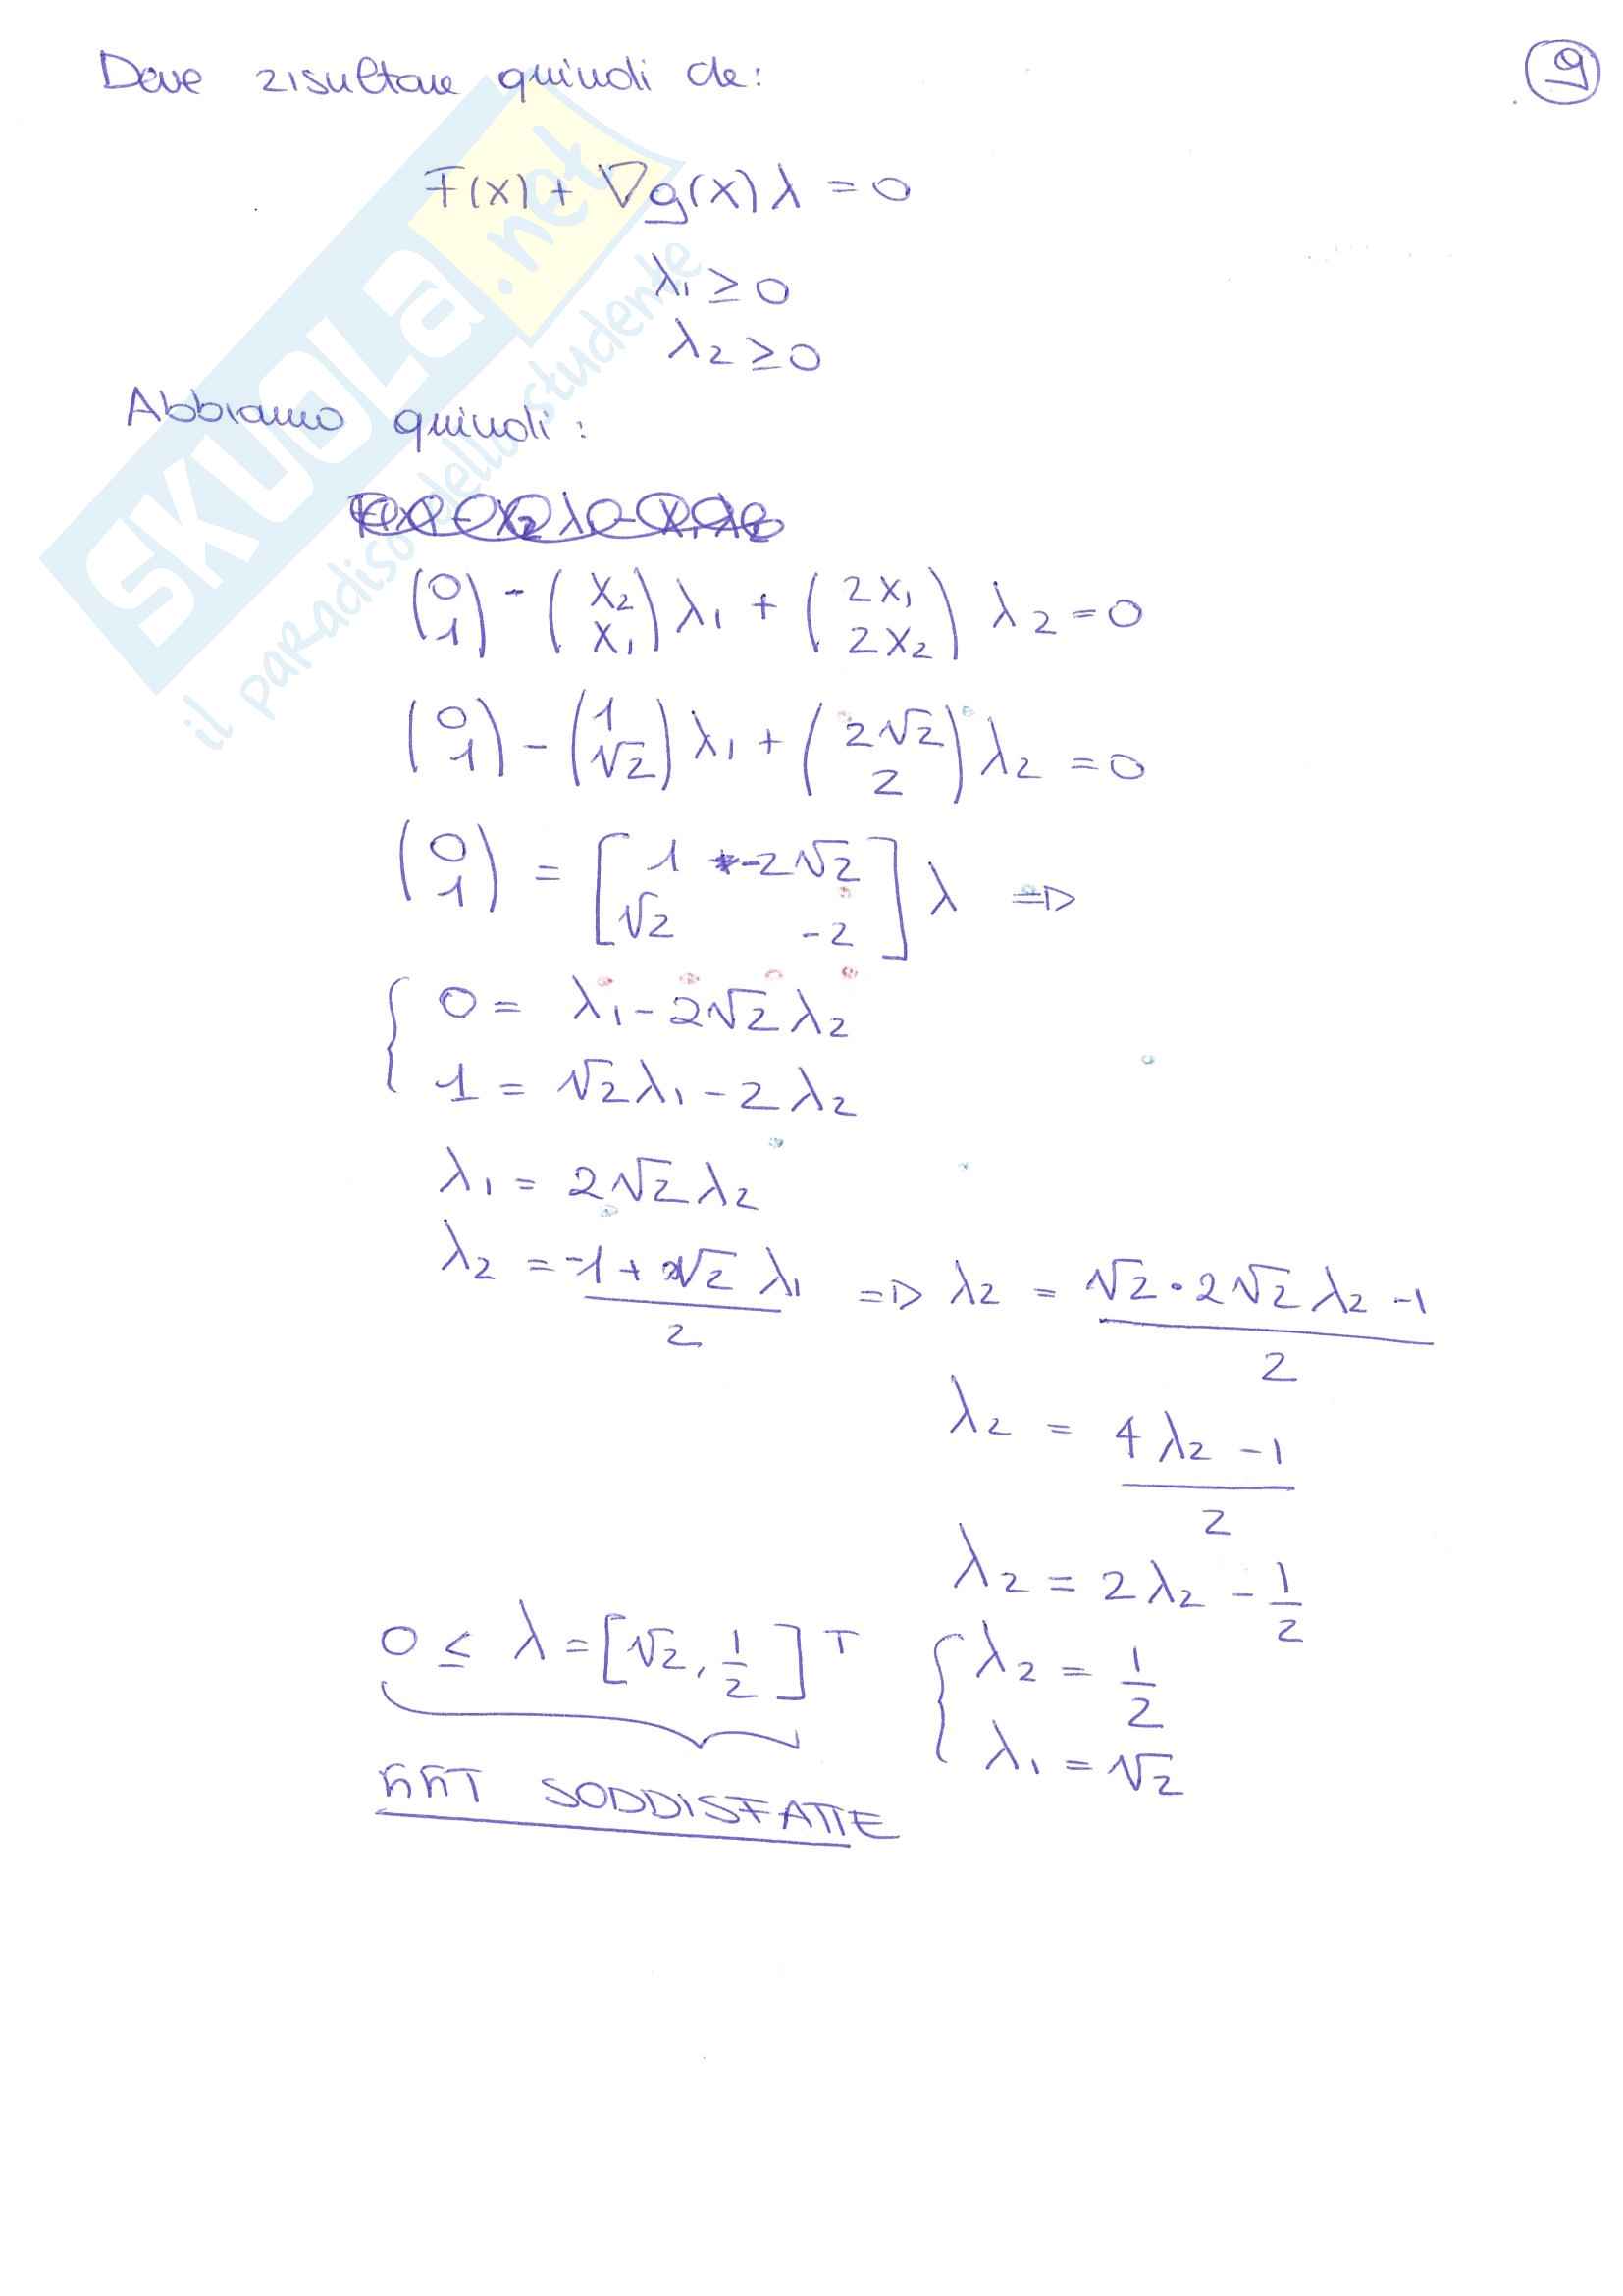 Deve risultare quindi che:
9
F(x) + ∇g(x)λ = 0
λ₁ ≥ 0
λ₂ ≥ 0
Abbiamo quindi:
(0 1) - (x₂ x₁) λ₁ + (2x₁ 2x₂) λ₂ = 0
(0 1) - (1 √2) λ₁ + (2√2 2) λ₂ = 0
(0 1) = [1 -2√2 √2 -2] λ ⇒
0 = λ₁ - 2√2 λ₂
1 = √2 λ₁ - 2 λ₂
λ₁ = 2√2 λ₂
λ₂ = (-1 + √2 λ₁)/2 ⇒ λ₂ = (√2 · 2√2 λ₂ - 1)/2
λ₂ = (4λ₂ - 1)/2
λ₂ = 2λ₂ - 1/2
0 ≤ λ = [√2, 1/2]ᵀ
λ₂ = 1/2
λ₁ = √2
KKT SODDISFATTE
SKUOLA.net
il paradiso dello studente